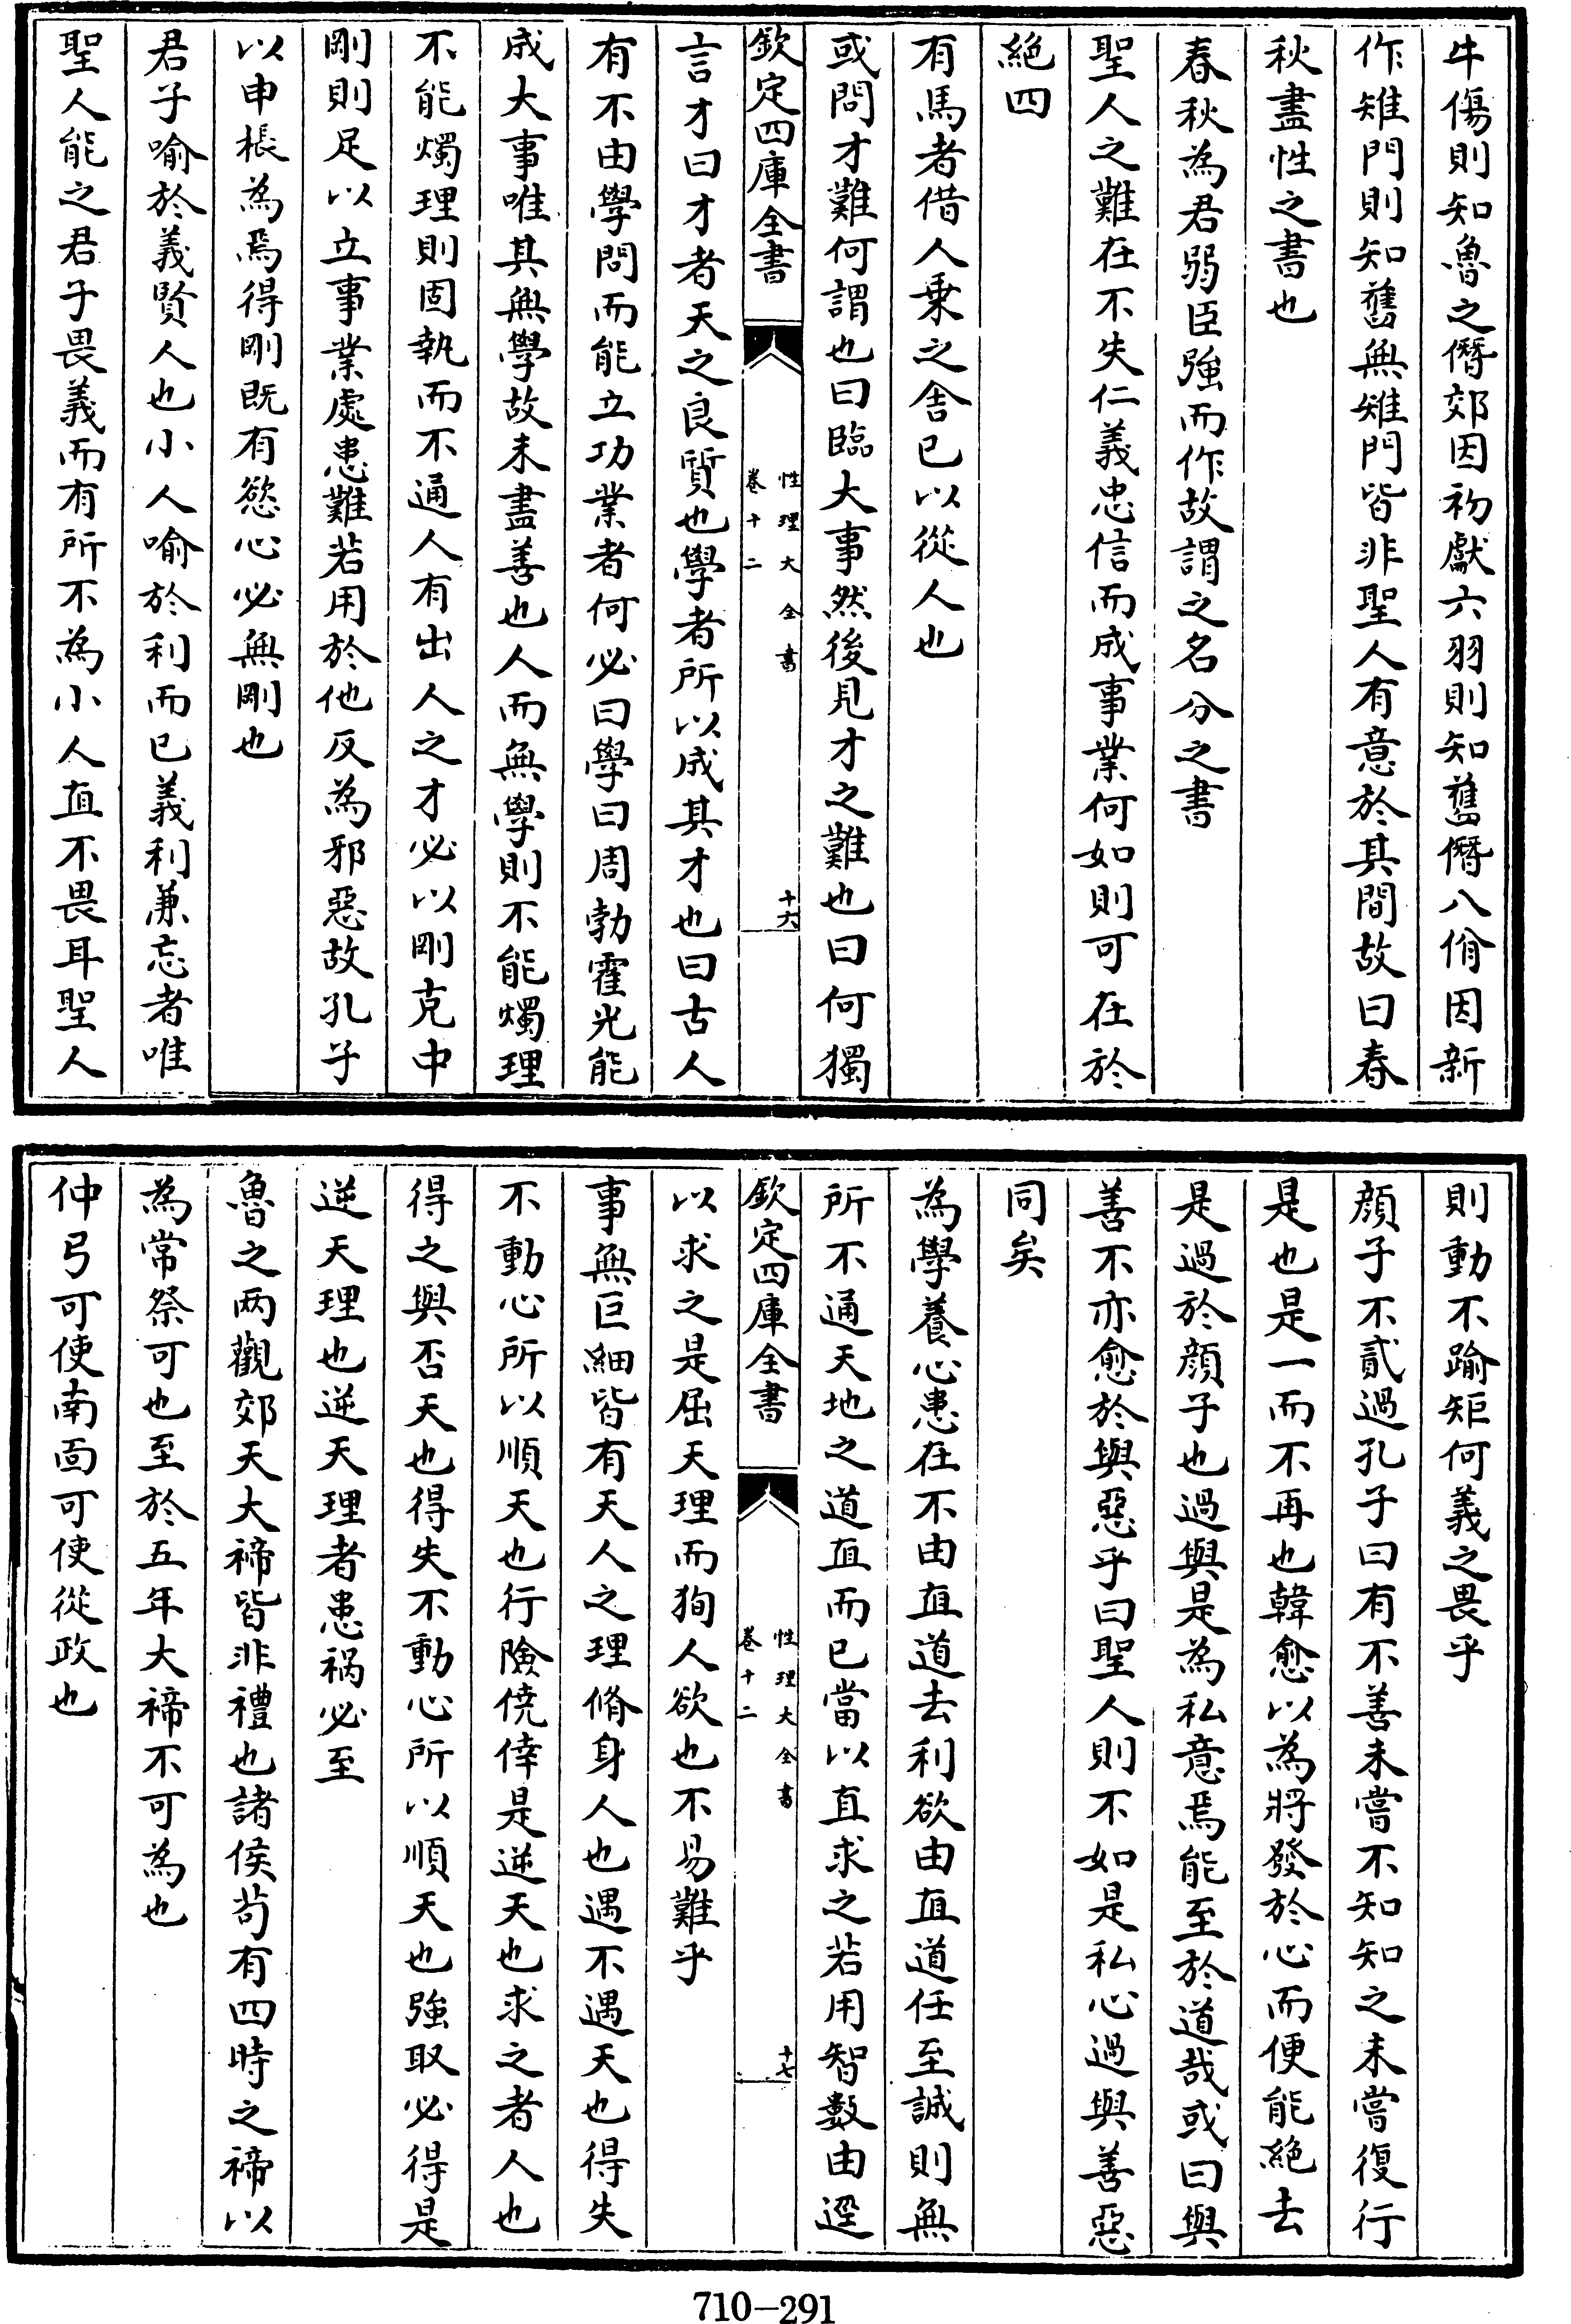 牛傷則知魯之僭郊因初獻六羽則知舊僭八佾因新
作雉門則知舊無雉門皆非聖人有意於其間故曰春
秋盡性之書也
春秋為君弱臣強而作故謂之名分之書
聖人之難在不失仁義忠信而成事業何如則可在於
絕四
有馬者借人乗之舎已以從人也
或問才難何謂也曰臨大事然後見才之難也曰何獨
欽定四庫全書
性理大全書
卷十二
十六
言才曰才者天之良質也學者所以成其才也曰古人
有不由學問而能立功業者何必曰學曰周勃霍光能
成大事唯其無學故未盡善也人而無學則不能燭理
不能燭理則固執而不通人有出人之才必以剛克中
剛則足以立事業處患難若用於他反為邪惡故孔子
以申棖為焉得剛既有慾心必無剛也
君子喻於義賢人也小人喻於利而已義利兼忘者唯
聖人能之君子畏義而有所不為小人直不畏耳聖人
則動不踰矩何義之畏乎
顔子不貳過孔子曰有不善未嘗不知知之未嘗復行
是也是一而不再也韓愈以為將發於心而便能絕去
是過於顔子也過與是為私意焉能至於道哉或曰與
善不亦愈於與惡乎曰聖人則不如是私心過與善惡
同矣
為學養心患在不由直道去利欲由直道任至誠則無
所不通天地之道直而已當以直求之若用智數由逕
欽定四庫全書
性理大全書
卷十二
十七
以求之是屈天理而狥人欲也不易難乎
事無巨細皆有天人之理脩身人也遇不遇天也得失
不動心所以順天也行險僥倖是逆天也求之者人也
得之與否天也得失不動心所以順天也強取必得是
逆天理也逆天理者患禍必至
魯之两觀郊天大禘皆非禮也諸侯茍有四時之禘以
為常祭可也至於五年大禘不可為也
仲弓可使南面可使從政也
710-291